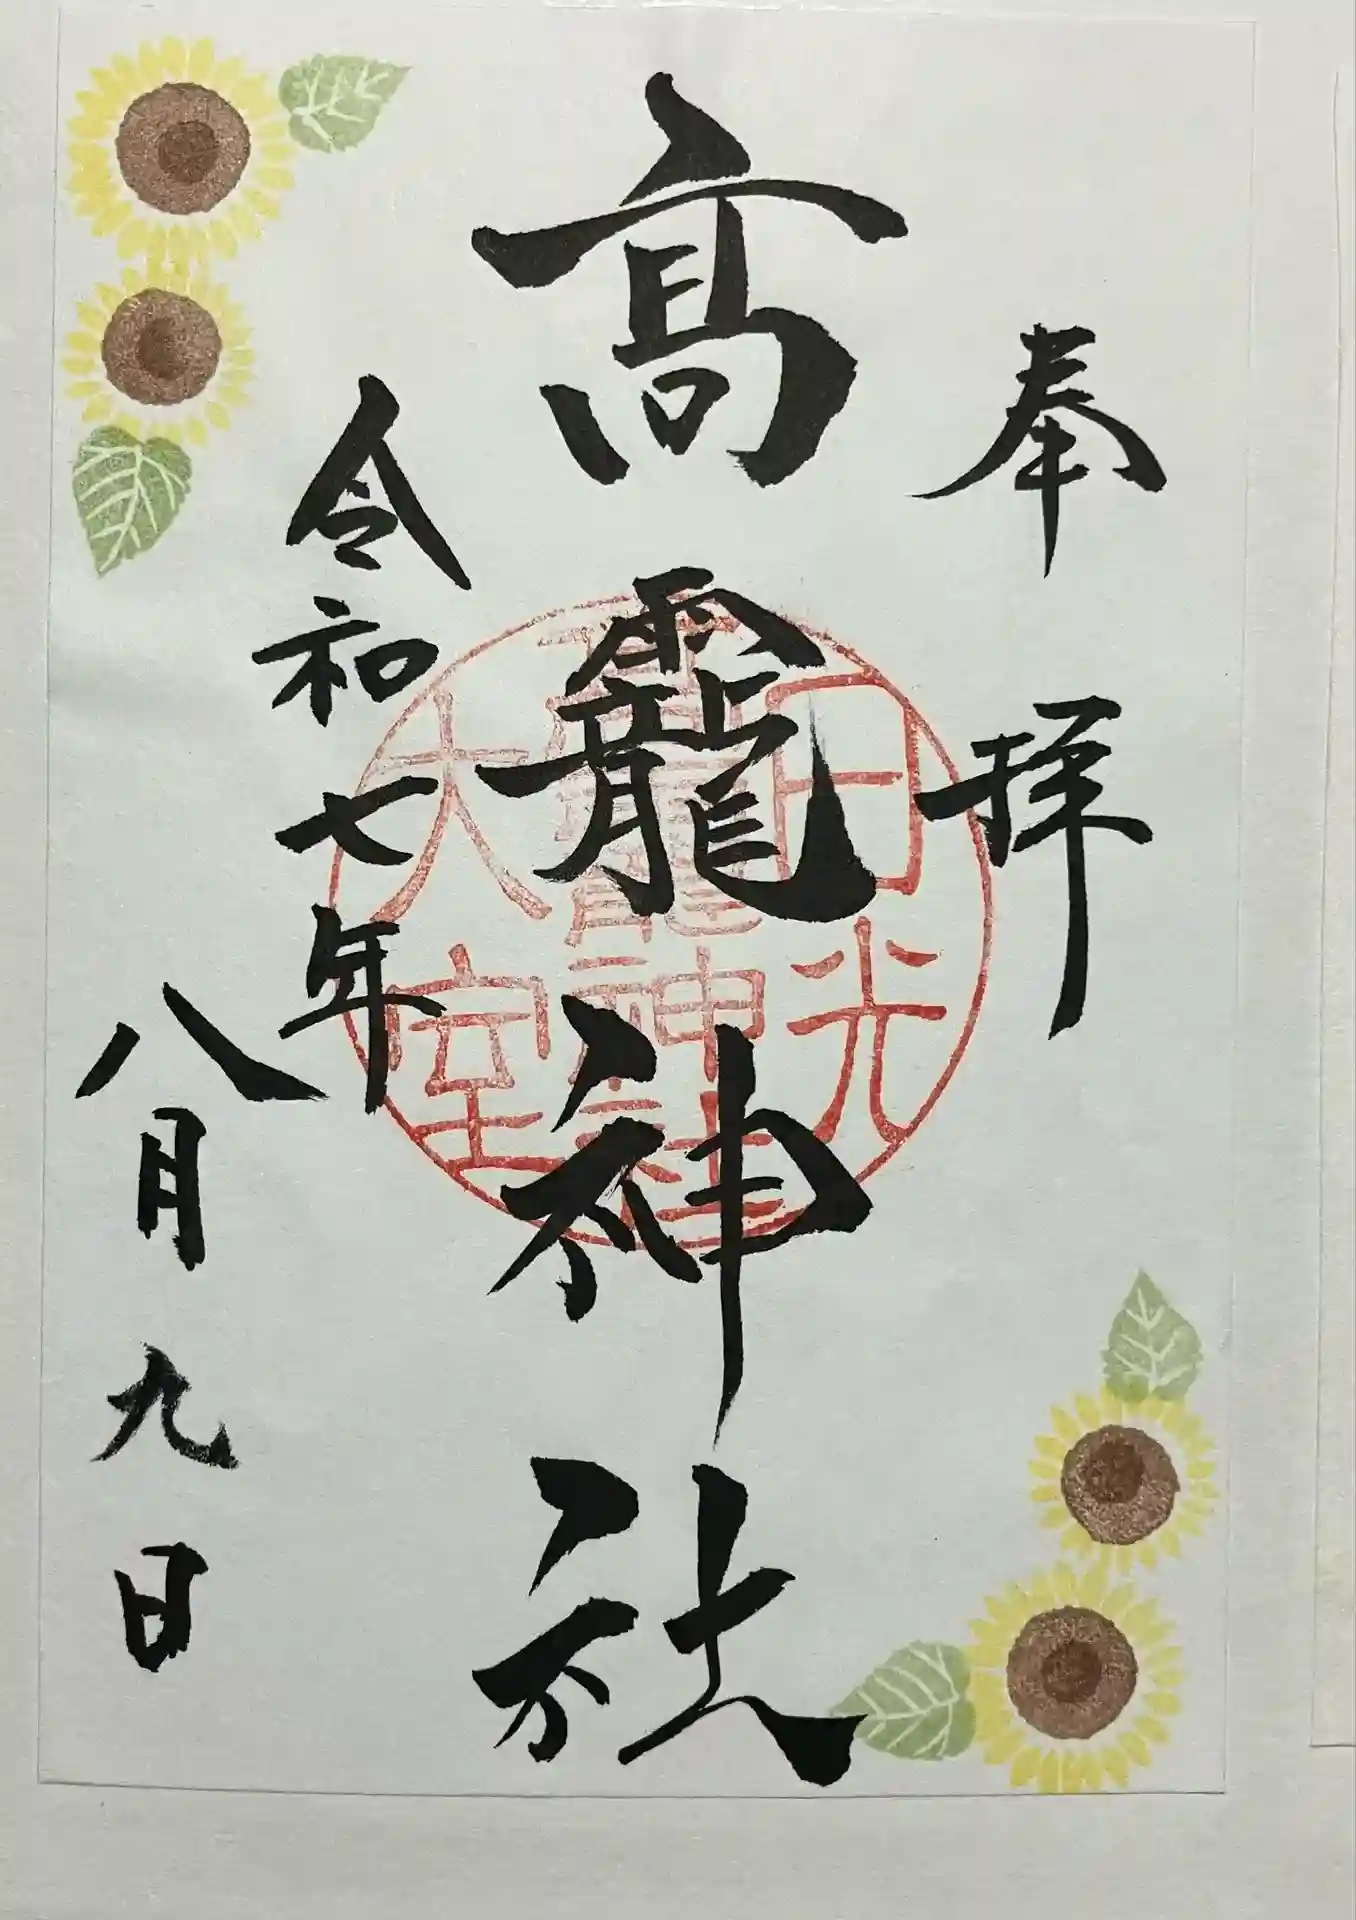 奉拝
髙靇神社
令和七年
八月九日
日光
高龗神社
大室